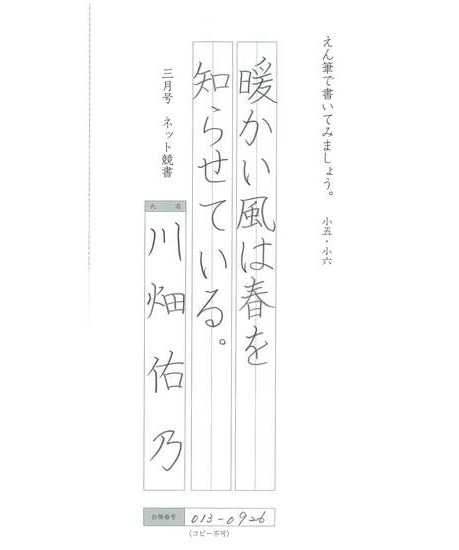 えん筆で書いてみましょう。 小五・小六
暖かい風は春を
知らせている。
三月号 ネット競書
氏名
川畑佑乃
会員番号 013-0926
(コピー不可)